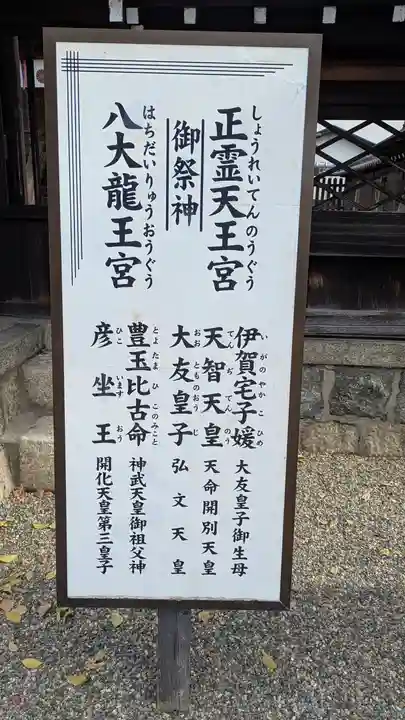 正霊天王宮
しょうれいてんのうぐう
御祭神
八大龍王宮
はちだいりゅうおうぐう
伊賀宅子媛
いがのやかこひめ
大友皇子御生母
天智天皇
てんぢてんのう
天命開別天皇
大友皇子
おおとものおうじ
弘文天皇
豊玉比古命
とよたまひこのみこと
神武天皇御祖父神
彦坐王
ひこいますおう
開化天皇第三皇子